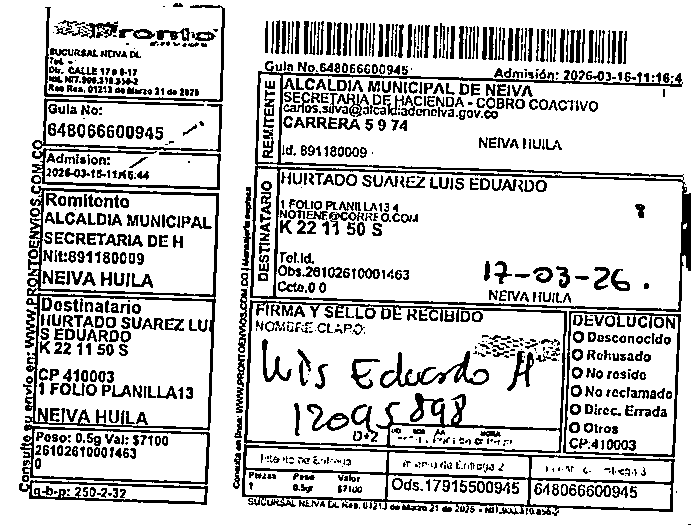 Pronto
envios
SUCURSAL NEIVA DL
Tel.
Dir. CALLE 17 # 6-17
Res Res. 01213 de Marzo 21 de 2025
Guia No:
648066600945
Admision:
2026-03-16-11:16:44
Romitonto
ALCALDIA MUNICIPAL
SECRETARIA DE H
Nit:891180009
NEIVA HUILA
Destinatario
HURTADO SUAREZ LUI
S EDUARDO
K 22 11 50 S
CP 410003
1 FOLIO PLANILLA13
NEIVA HUILA
Peso: 0.5g Val: $7100
26102610001463
0
q-b-p: 250-2-32
Consulte su envio en: WWW.PRONTOENVIOS.COM.CO
Guia No.648066600945
Admisión: 2026-03-16-11:16:4
REMITENTE
ALCALDIA MUNICIPAL DE NEIVA
SECRETARIA DE HACIENDA - COBRO COACTIVO
carlos.silva@alcaldianeiva.gov.co
CARRERA 5 9 74
NEIVA HUILA
Id. 891180009
DESTINATARIO
HURTADO SUAREZ LUIS EDUARDO
1 FOLIO PLANILLA13 4
NOTIENE@CORREO.COM
K 22 11 50 S
Tel.Id.
Obs.26102610001463
Ccto.0 0
17-03-26.
NEIVA HUILA
FIRMA Y SELLO DE RECIBIDO
NOMBRE CLARO:
Luis Eduardo H
12095898
D+2
DEVOLUCION
Desconocido
Rehusado
No reside
No reclamado
Direc. Errada
Otros
CP:410003
Intento de Entrega
Intento de Entrega 2
Piezas Peso Valor
1 0.5g $7100
Ods.17915500945
648066600945
SUCURSAL NEIVA DL Res. 01213 de Marzo 21 de 2025 - Nit.900.310.856-2